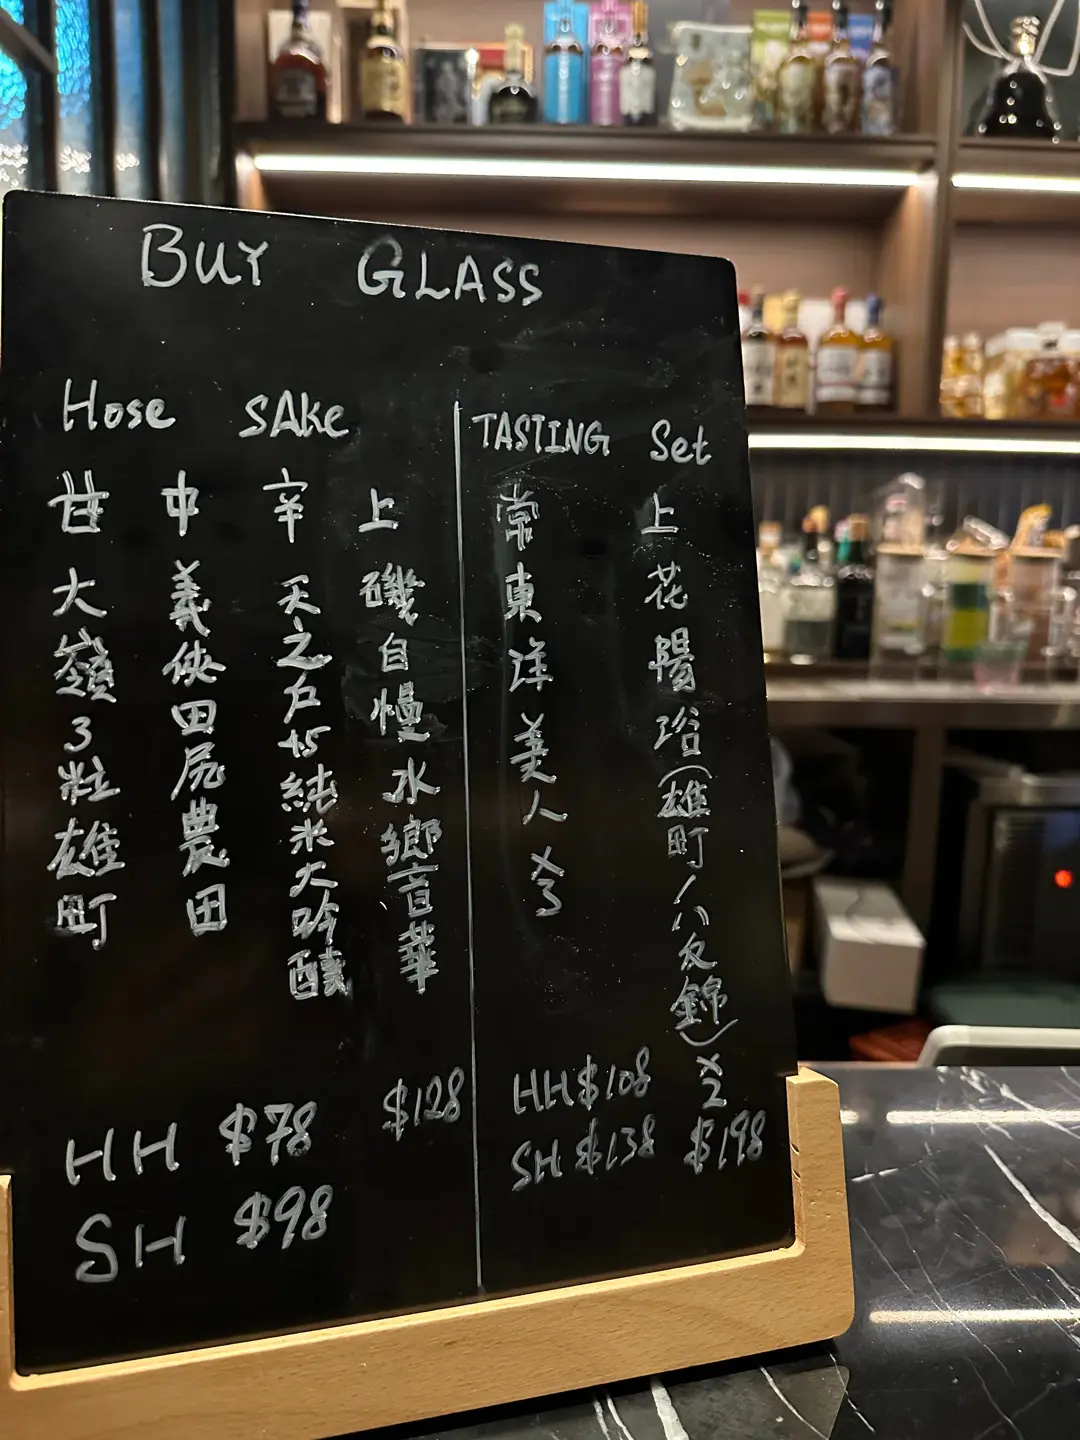 BUY GLASS
Hose SAke
甘 大嶺3粒雄町
中 義俠田尻農田
辛 天之戶45純米大吟釀
上 磯自慢水響音華
HH $78
SH $98
$128
TASTING Set
常 東洋美人 x3
上 花陽浴(雄町/八反錦) x2
HH $108
SH $138
$198